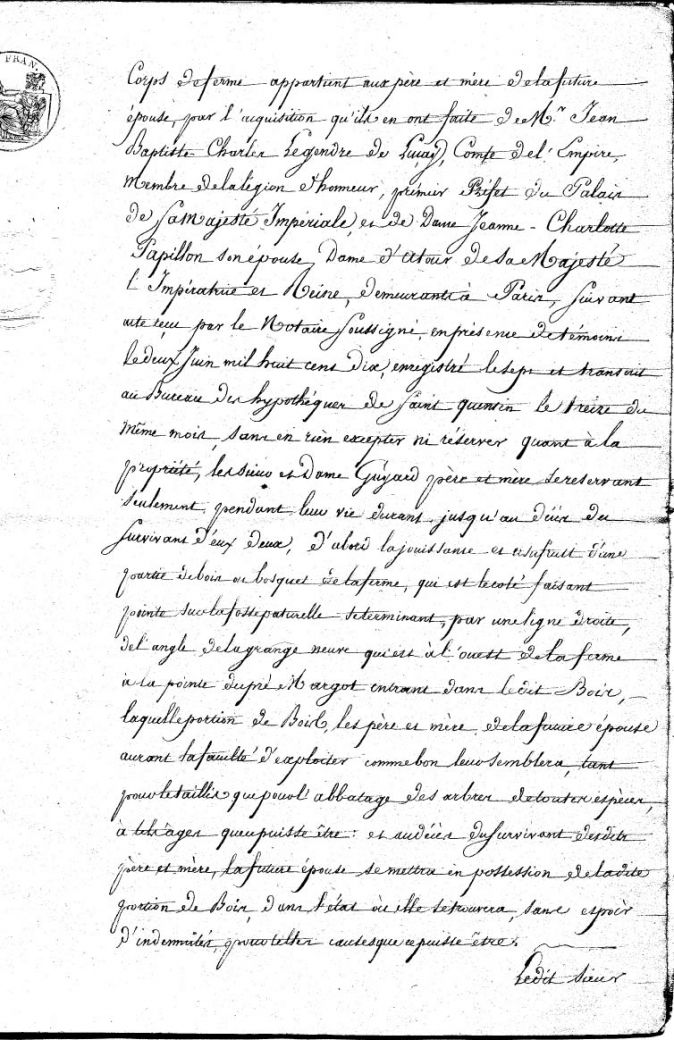 FRAN.
Corps de ferme appartient aux père et mère de la future
épouse, par l'acquisition qu'ils en ont faite de M.r Jean
Baptiste Charles Legendre de Luçay, Comte de l'Empire,
Membre de la légion d'honneur, premier Préfet du Palais
de Sa Majesté Impériale, et de Dame Jeanne-Charlotte
Papillon son épouse, Dame d'atour de Sa Majesté
l'Impératrice et Reine, demeurants à Paris, suivant
acte reçu par le Notaire soussigné, en présence de témoins
le deux Juin mil huit cens dix, enregistré le sept et transcrit
au Bureau des hypothéques de Saint quentin le treize du
même mois, sans en rien excepter ni réserver quant à la
propriété, les sieur et Dame Guyard père et mère se réservant
seulement, pendant leur vie durant, jusqu'au décès du
survivant d'eux deux, d'abord la jouissance et usufruit d'une
partie de bois ou bosquet de la ferme, qui est le coté faisant
pointe sur la fosse paturelle se terminant, par une ligne droite,
de l'angle de la grange neuve qui est à l'ouest de la ferme
à la pointe du pré Margot entrant dans le dit Bois,
laquelle portion de Bois, les père et mère de la future épouse
auront la faculté d'exploiter comme bon leur semblera, tant
pour le taillis que pour l'abbatage des arbres de toutes espèces,
à tels âges que puisse être: et au décès du survivant desdits
père et mère, la future épouse se mettra en possession de la dite
portion de Bois, dans l'état où elle se trouvera, sans espoir
d'indemnités, pour telles causes que ce puisse être.
Ledit sieur